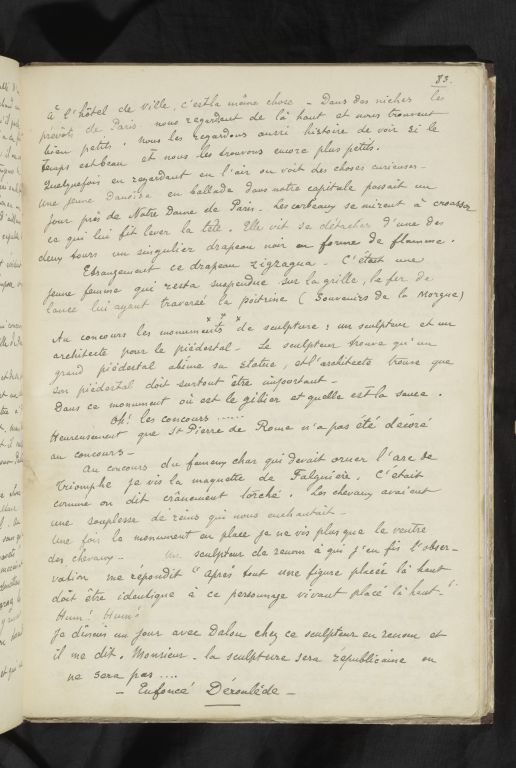 83.
À l'hôtel de ville, c'est la même chose - Dans des niches les
prévôts de Paris nous regardent de là haut et nous trouvent
bien petits. nous les regardons aussi histoire de voir si le
temps est beau et nous les trouvons encore plus petits.
Quelquefois en regardant en l'air on voit des choses curieuses -
Une jeune danoise en ballade dans notre capitale passait un
jour près de Notre Dame de Paris. Les corbeaux se mirent à croasser
ce qui lui fit lever la tête. Elle vit se détacher d'une des
deux tours un singulier drapeau noir en forme de flamme.
Etrangement ce drapeau zigzagua - C'était une
jeune femme qui resta suspendue sur la grille, le fer de
lance lui ayant traversé la poitrine (Souvenirs de la Morgue)
x x x
Au concours les monuments de sculpture : un sculpteur et un
architecte pour le piédestal - Le sculpteur trouve qu'un
grand piédestal abîme sa statue, et l'architecte trouve que
son piédestal doit surtout être important -
Dans ce monument où est le gibier et quelle est la sauce.
Oh! les concours ......
Heureusement que St Pierre de Rome n'a pas été décoré
au concours -
Au concours du fameux char qui devait orner l'arc de
Triomphe je vis la maquette de Falguière. C'était
comme on dit crânement torché. Les chevaux avaient
une souplesse de reins qui nous enchantait -
Une fois le monument en place je ne vis plus que le ventre
des chevaux - Un sculpteur de renom à qui j'en fis l'obser-
vation me répondit "Après tout une figure placée là haut
doit être identique à ce personnage vivant placé là haut -"
Hum! Hum!
Je dînais un jour avec Dalou chez ce sculpteur en renom et
il me dit. Monsieur - la sculpture sera républicaine ou
ne sera pas ....
- Enfoncé Déroulède -